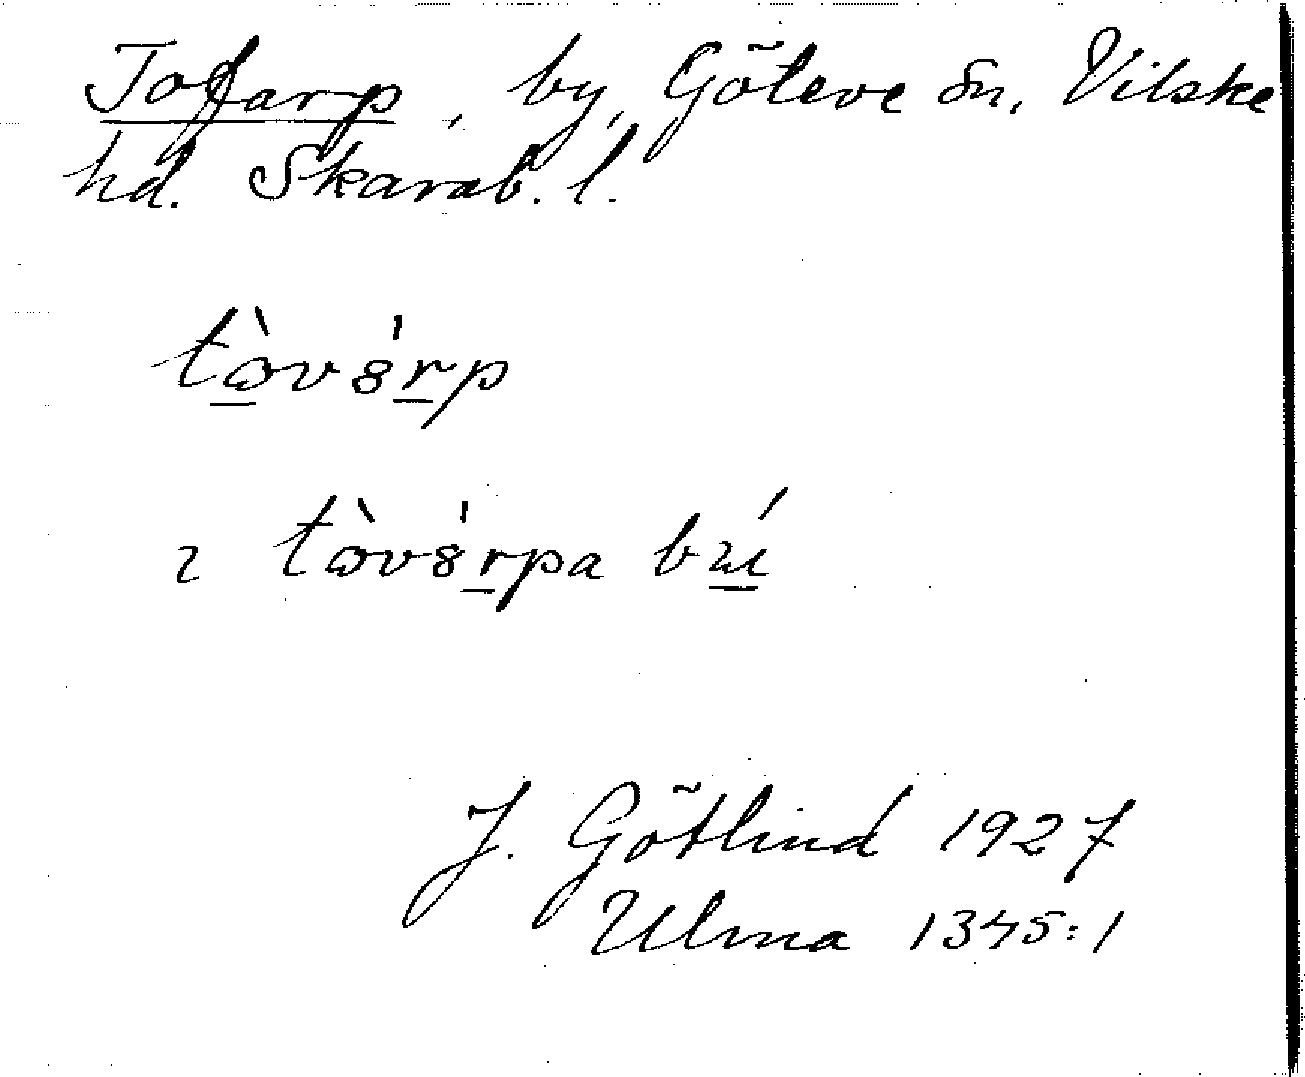 Tofarp, by, Göteve sn, Vilske
hd. Skarab. l.
tò̠vȣ́r̠p
ɿ tòvȣ́r̠pa bɯ̠́
J. Götlind 1927
Ulma 1345:1